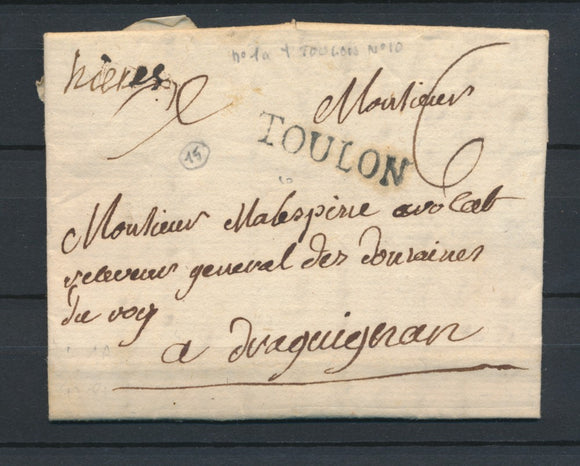 no 1a + TOULON No 10
hières
Monsieur
TOULON
6
15
Monsieur Malespine avocat
receveur general des domaines
du roy
a draguignan